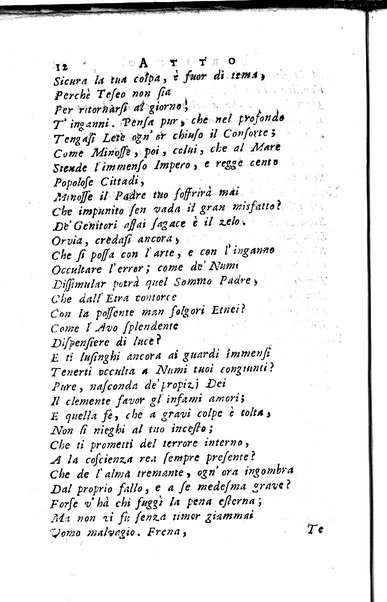 12 ATTO
Sicura la tua colpa, è fuor di tema,
Perchè Teseo non ſia
Per ritornarſi al giorno;
T' inganni. Penſa pur, che nel profondo
Tengaſi Lete ogn' or chiuſo il Conſorte;
Come Minoſſe, poi, colui, che al Mare
Stende l' immenſo Impero, e regge cento
Popoloſe Cittadi,
Minoſſe il Padre tuo ſoffrirà mai
Che impunito ſen vada il gran misfatto?
De' Genitori aſſai ſagace è il zelo.
Orvia, credaſi ancora,
Che ſi poſſa con l' arte, e con l' inganno
Occultare l' error; come de' Numi
Diſſimular potrà quel Sommo Padre,
Che dall' Etra contorce
Con la poſſente man folgori Etnei?
Come l' Avo ſplendente
Diſpenſiere di luce?
E ti luſinghi ancora ai guardi immenſi
Tenerti occulta a Numi tuoi congiunti?
Pure, naſconda de' propizj Dei
Il clemente favor gl' infami amori;
E quella fè, che a gravi colpe è tolta,
Non ſi nieghi al tuo inceſto;
Che ti prometti del terrore interno,
A la coſcienza rea ſempre preſente?
Che de l' alma tremante, ogn' ora ingombra
Dal proprio fallo, e a ſe medeſma grave?
Forſe v' hà chi fuggì la pena eſterna;
Ma non vi fu ſenza timor giammai
Uomo malvagio. Frena,
Te